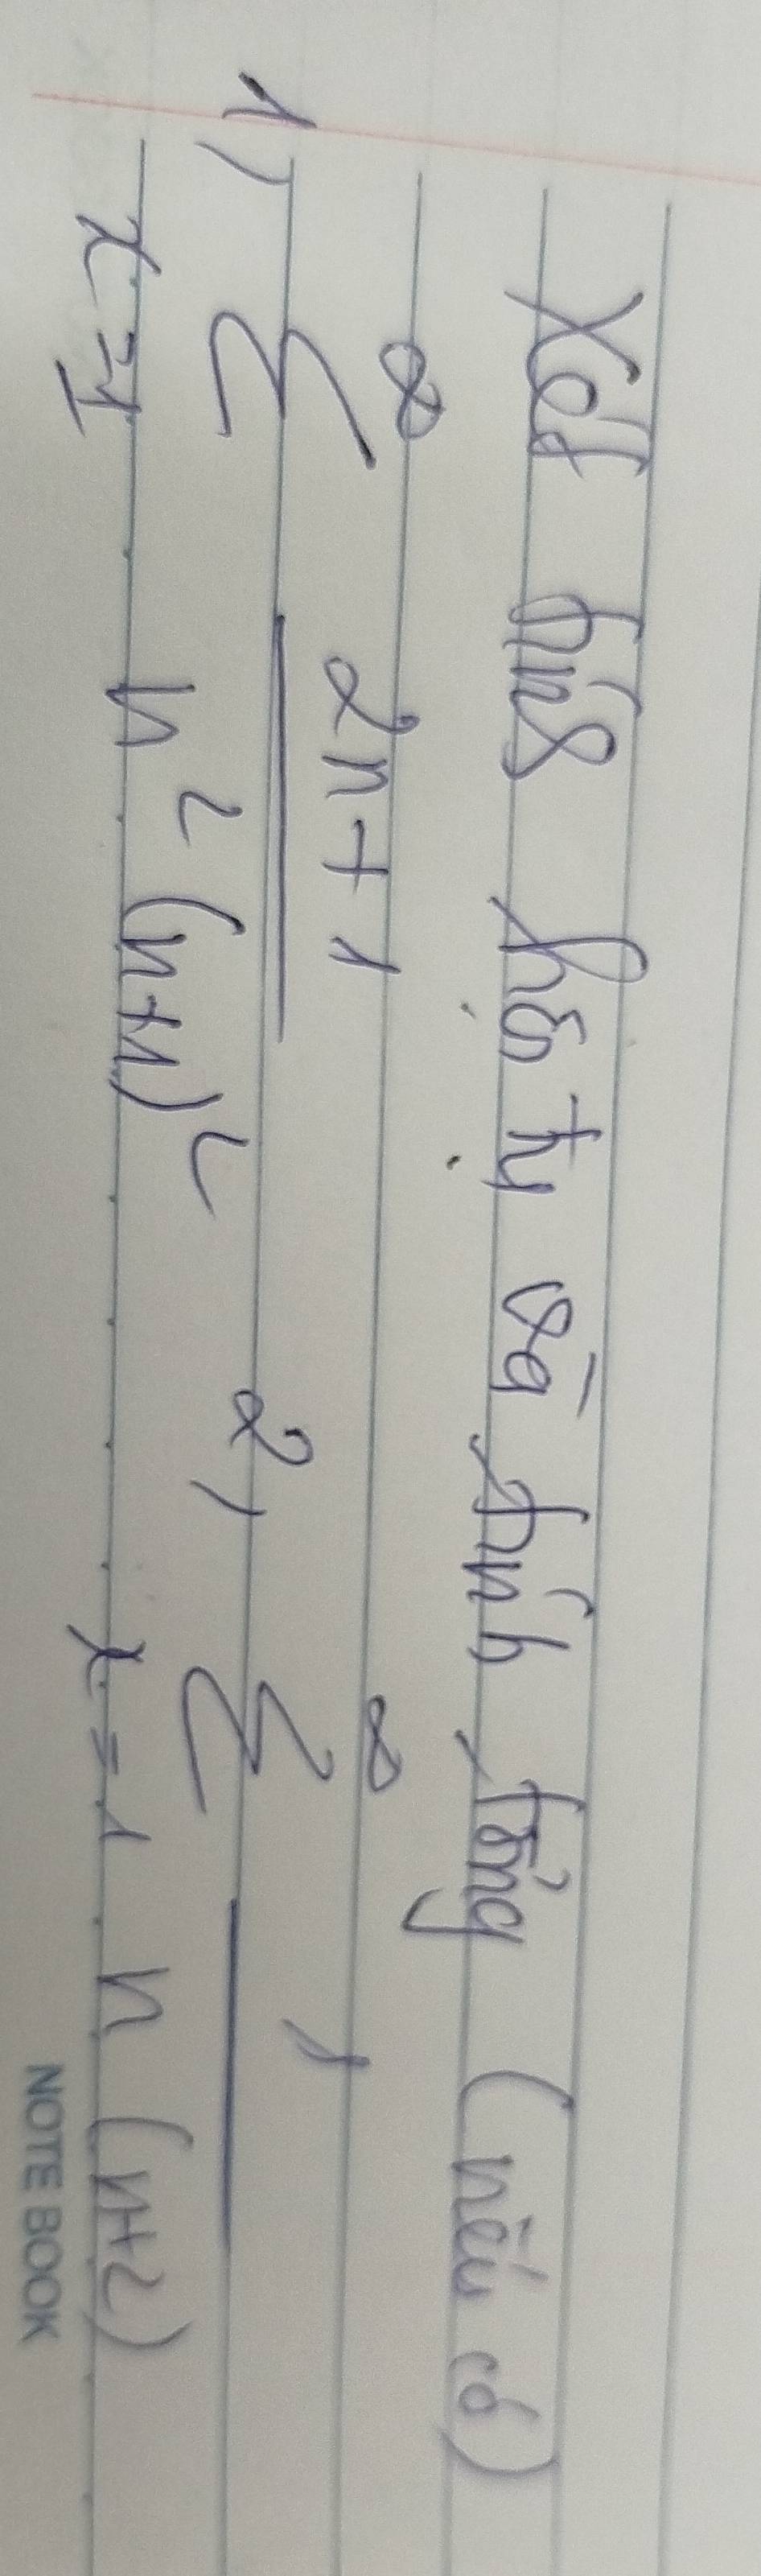 Xét tính hội tụ và tính tổng (nếu có)
1, ∞ ∑ x=1 2n+1 / n² (n+1)² 2, ∞ ∑ x=1 1 / n (n+2)
NOTE BOOK